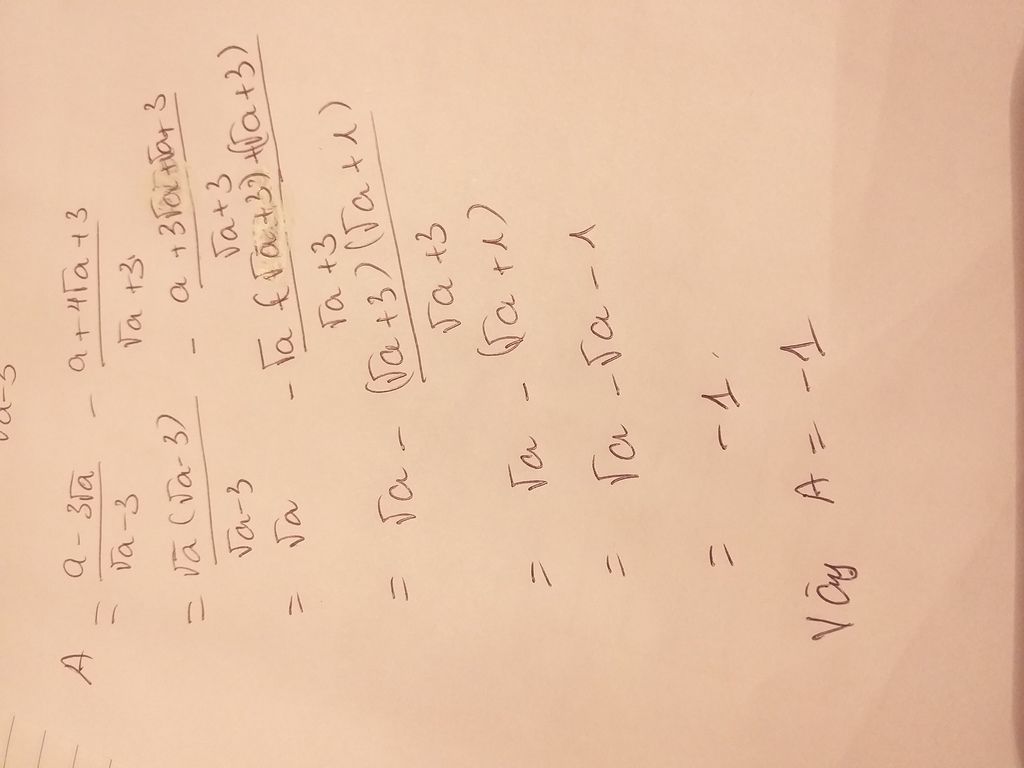 √a-3
A = (a - 3√a)/(√a - 3) - (a + 4√a + 3)/(√a + 3)
= (√a (√a - 3))/(√a - 3) - (a + 3√a + √a + 3)/(√a + 3)
= √a - (√a (√a + 3) + (√a + 3))/(√a + 3)
= √a - ((√a + 3) (√a + 1))/(√a + 3)
= √a - (√a + 1)
= √a - √a - 1
= -1
Vậy A = -1